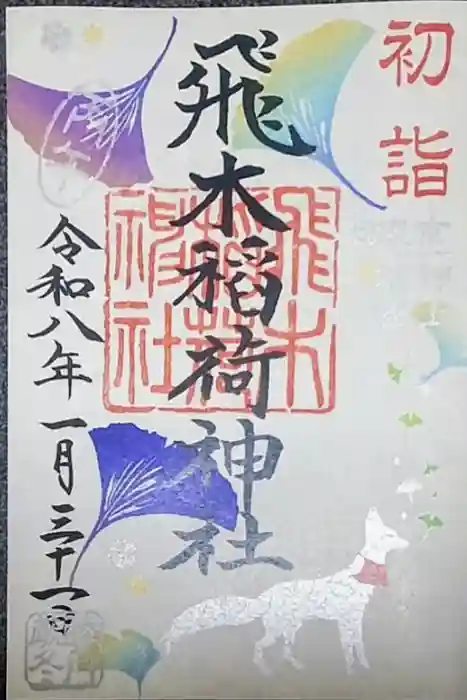 初詣
飛木稲荷神社
飛木
稲荷
神社
令和八年一月三十一日